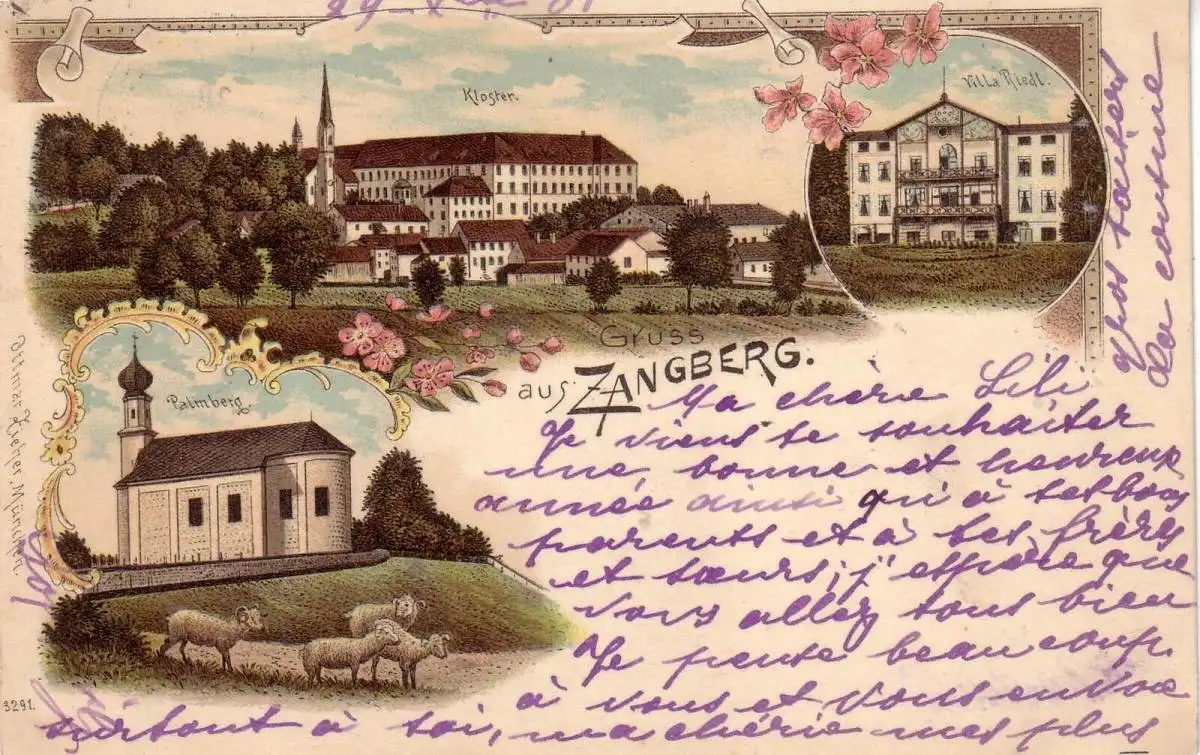 Kloster.
Villa Riedl.
Gruss
aus ZANGBERG.
Palmberg
Ottmar Zieher, München.
3291.
Ma chère Lili
Je viens te souhaiter
une bonne et heureuse
année ainsi qu'à tes bons
parents et à tes frères
et sœurs; j'espère que
vous allez tous bien
Je pense beaucoup
à vous et vous envoie
surtout à toi, ma chérie mes plus